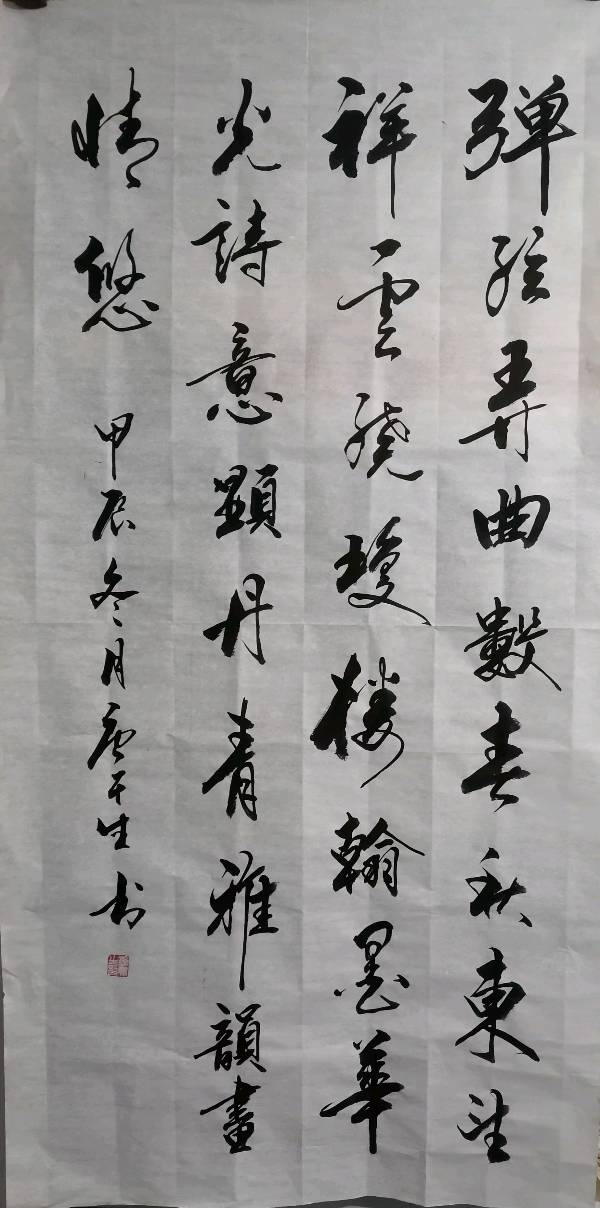 弹弦弄曲數春秋東望
祥雲繞瓊楼翰墨華
光詩意顯丹青雅韻畫
情悠
甲辰冬月 生书